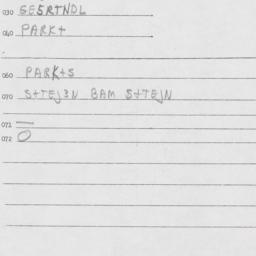 030 GESRTNDL
040 PARK+
060 PARK+S
070 S+TEJ3N BAM S+TEJN
071 —
072 0